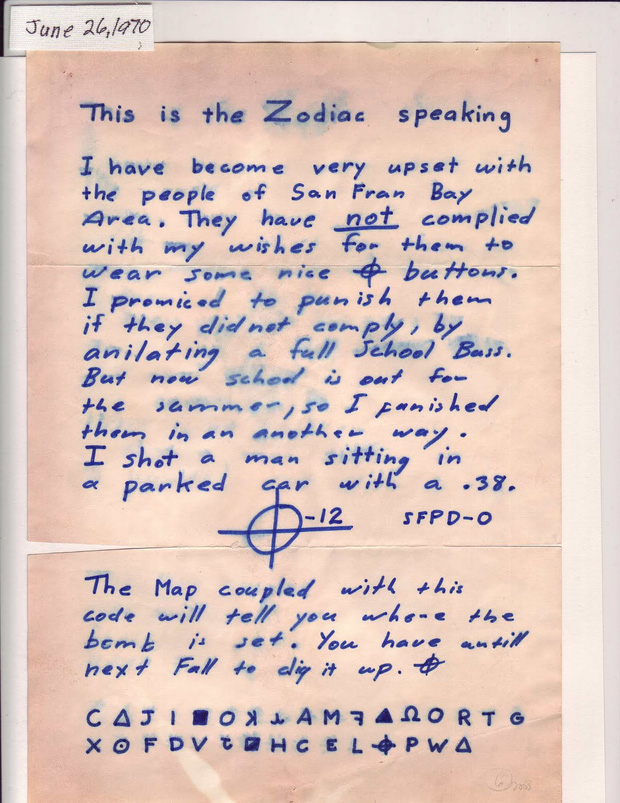 June 26,1970
This is the Zodiac speaking
I have become very upset with
the people of San Fran Bay
Area. They have not complied
with my wishes for them to
wear some nice ⌖ buttons.
I promiced to punish them
if they did not comply, by
anilating a full School Buss.
But now school is out for
the summer, so I punished
them in an another way.
I shot a man sitting in
a parked car with a .38.
⌖-12 SFPD-0
The Map coupled with this
code will tell you where the
bomb is set. You have untill
next Fall to dig it up. ⌖
C Δ J I ■ O ꓘ ⅄ A M ꟻ ▲ Ω O R T G
X ⊙ F D V ◪ H C E L ⌖ P W Δ